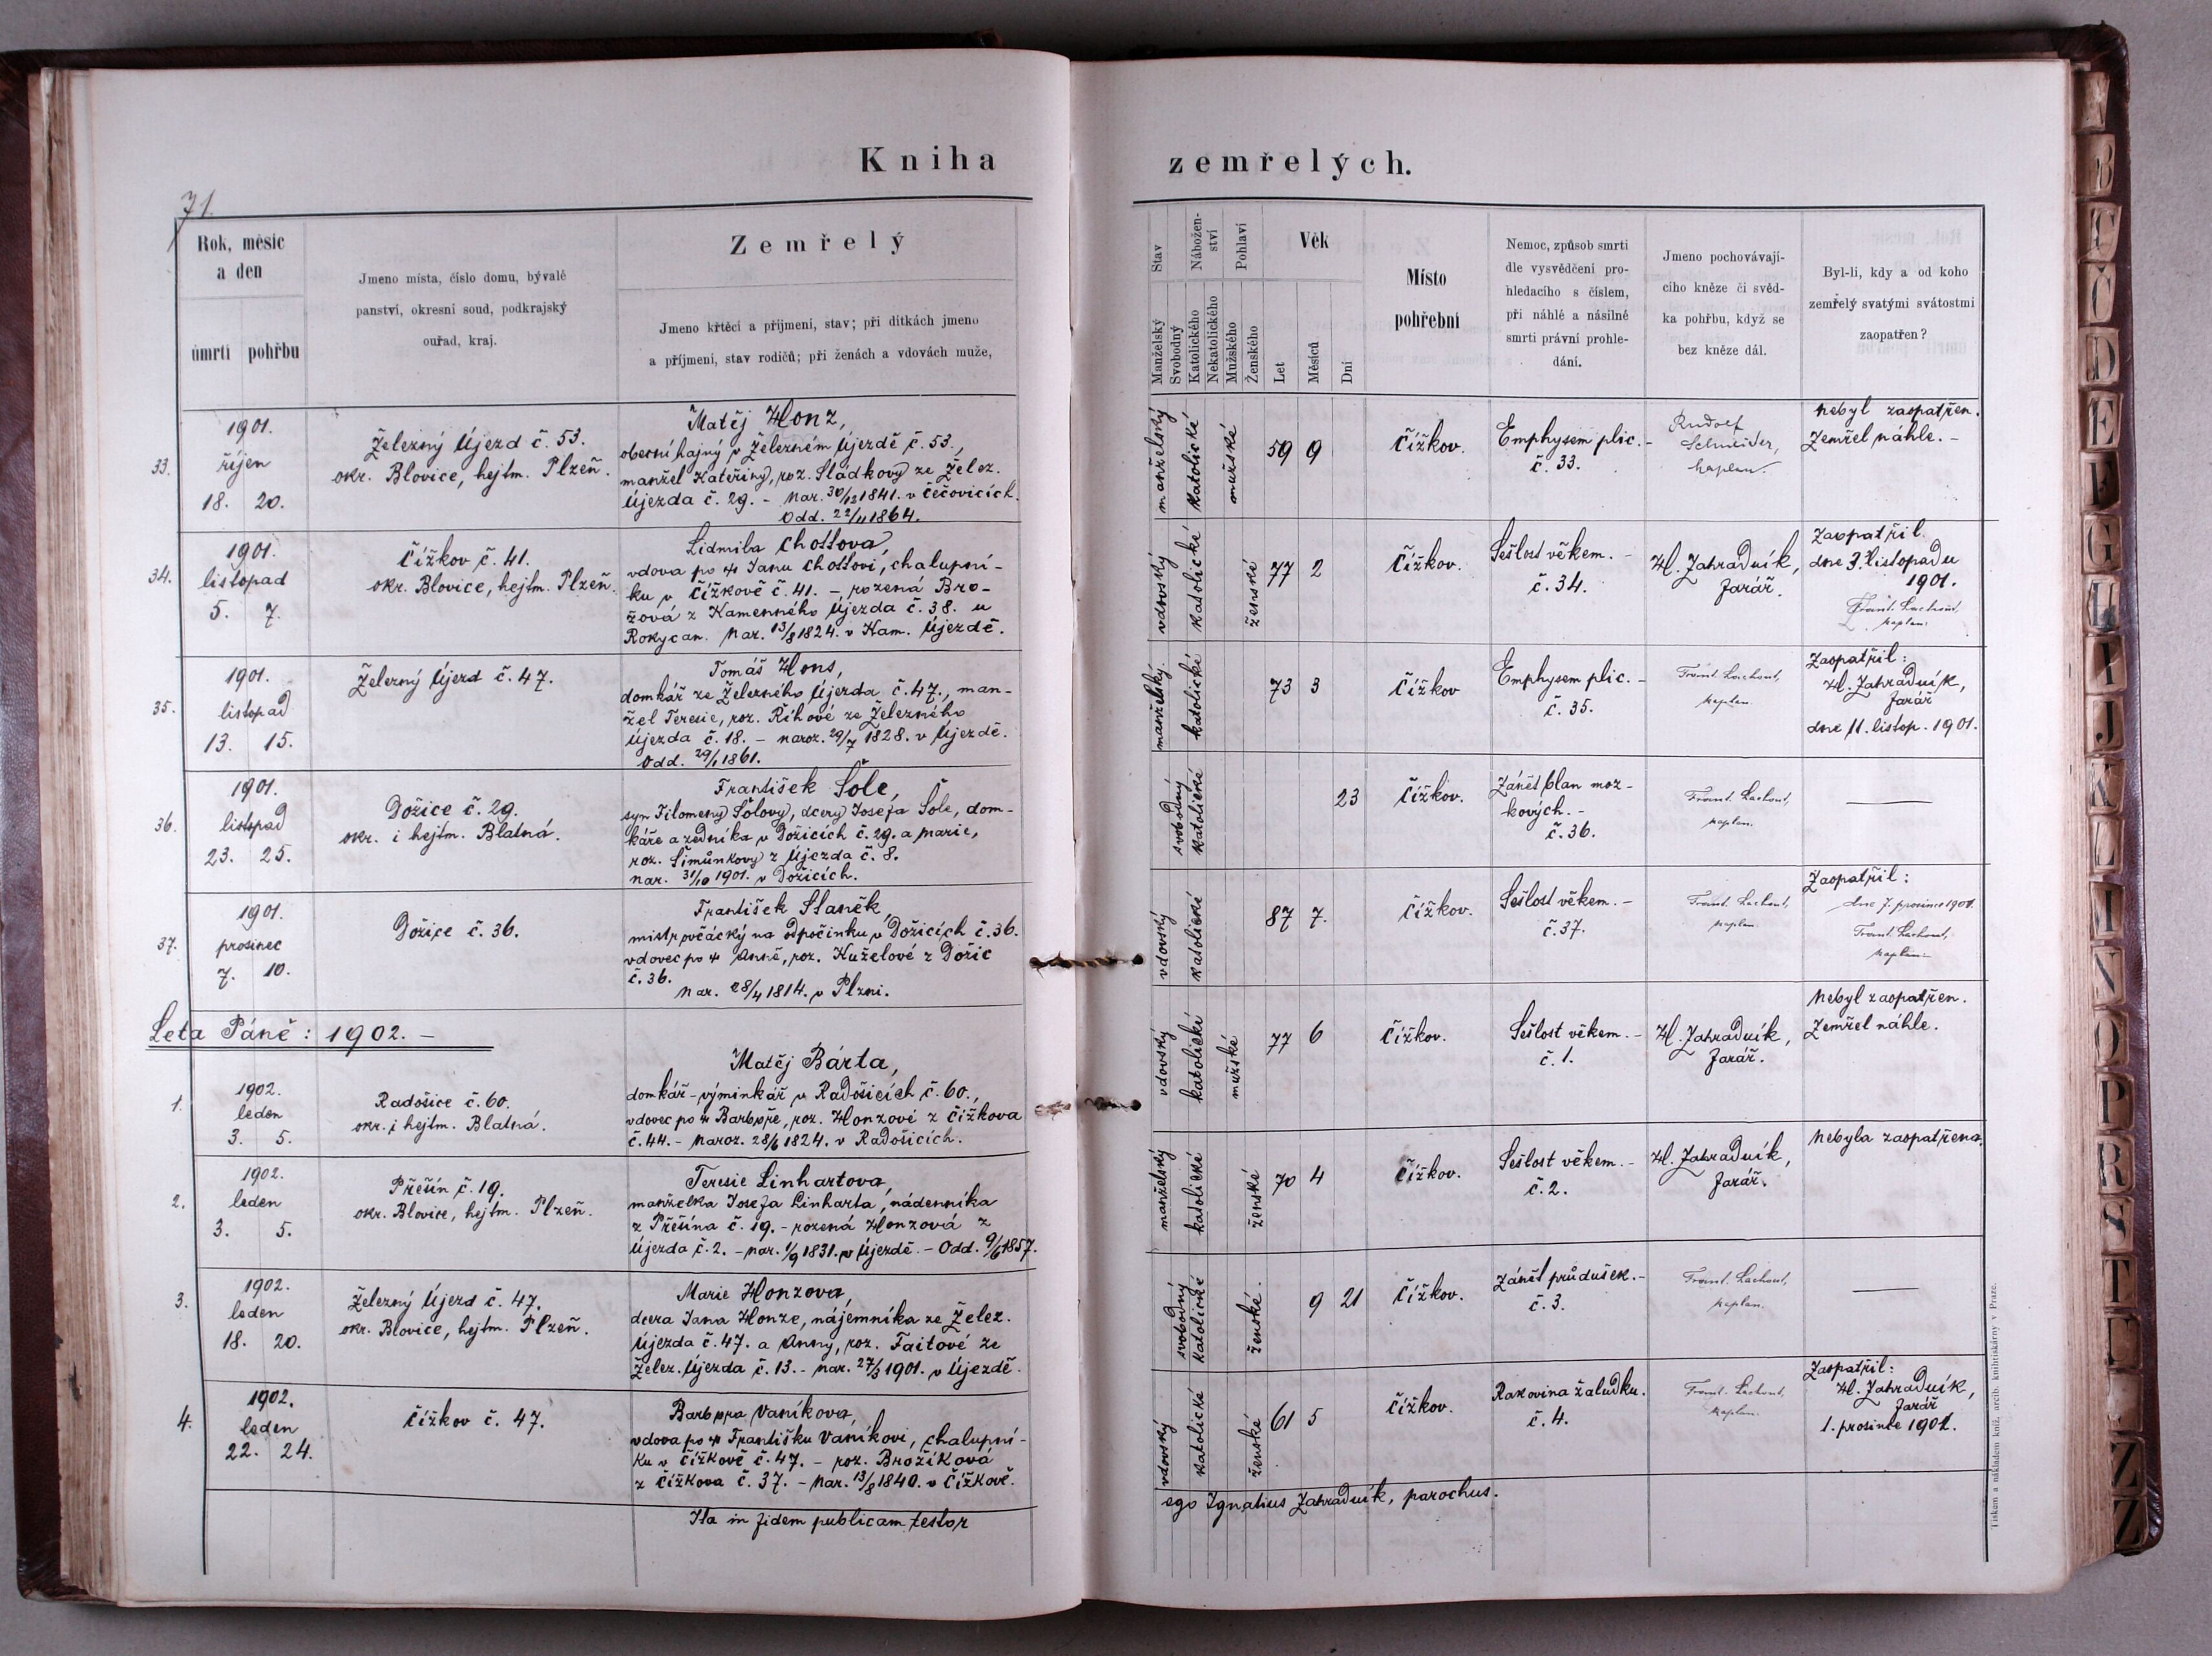 Kniha zemřelých.
71.
Rok, měsíc
a den
úmrtí pohřbu
Jmeno místa, číslo domu, bývalé
panství, okresní soud, podkrajský
ouřad, kraj.
Zemřelý
Jmeno křtěcí a příjmení, stav; při dítkách jmeno
a příjmení, stav rodičů; při ženách a vdovách muže,
Stav
Manželský
Svobodný
Nábožen-
ství
Katolického
Nekatolického
Pohlaví
Mužského
Ženského
Věk
Let
Měsíců
Dní
Místo
pohřební
Nemoc, způsob smrti
dle vysvědčení pro-
hledacího s číslem,
při náhlé a násilné
smrti právní prohle-
dání.
Jmeno pochovávají-
cího kněze či svěd-
ka pohřbu, když se
bez kněze dál.
Byl-li, kdy a od koho
zemřelý svatými svátostmi
zaopatřen?
33.
1901.
říjen
18. 20.
Železný Újezd č. 53.
okr. Blovice, hejtm. Plzeň.
Matěj Honz,
obecní hajný v Železném Újezdě č. 53.,
manžel Kateřiny, roz. Sládkovy ze Želez.
Újezda č. 29. - Nar. 30/12 1841. v Čečovicích.
Odd. 22/11 1864.
manželský
katolické
mužské
59 9
Čížkov.
Emphysem plic. -
č. 33.
Rudolf
Schneider,
kaplan.
Nebyl zaopatřen.
Zemřel náhle. -
34.
1901.
listopad
5. 7.
Čížkov č. 41.
okr. Blovice, hejtm. Plzeň.
Lidmila Chottova,
vdova po † Janu Chottovi, chalupní-
ku v Čížkově č. 41. -, rozená Bro-
žová z Kamenného Újezda č. 38. u
Rokycan. Nar. 13/8 1824. v Kam. Újezdě.
vdovský
katolické
ženské
77 2
Čížkov.
Sešlost věkem. -
č. 34.
H. Zahradník,
farář.
Zaopatřil
dne 3. listopadu
1901.
Frant. Lachout,
kaplan.
35.
1901.
listopad
13. 15.
Železný Újezd č. 47.
Tomáš Hons,
domkář ze Železného Újezda č. 47., man-
žel Teresie, roz. Říhové ze Železného
Újezda č. 18. - naroz. 29/7 1828. v Újezdě.
Odd. 29/1 1861.
manželský.
katolické
73 3
Čížkov
Emphysem plic. -
č. 35.
Frant. Lachout,
kaplan.
Zaopatřil:
H. Zahradník,
farář
dne 11. listop. 1901.
36.
1901.
listopad
23. 25.
Dožice č. 29.
okr. i hejtm. Blatná.
František Šole,
syn Filomeny Šolovy, dcery Josefa Šole, dom-
káře a zedníka v Dožicích č. 29. a Marie,
roz. Šimůnkovy z Újezda č. 8.
Nar. 31/10 1901. v Dožicích.
svobodný
katolické
23
Čížkov.
Zánět blan moz-
kových. -
č. 36.
Frant. Lachout,
kaplan.
37.
1901.
prosinec
7. 10.
Dožice č. 36.
František Staněk,
mistr ovčácký na odpočinku v Dožicích č. 36.
vdovec po † Anně, roz. Kuželové z Dožic
č. 36.
Nar. 28/4 1814. v Plzni.
vdovský
katolické
87 7.
Čížkov.
Sešlost věkem. -
č. 37.
Frant. Lachout,
kaplan.
Zaopatřil:
dne 7. prosince 1901.
Frant. Lachout,
kaplan.
Leta Páně: 1902. -
1.
1902.
leden
3. 5.
Radošice č. 60.
okr. i hejtm. Blatná.
Matěj Bárta,
domkář-výminkář v Radošicích č. 60.,
vdovec po † Barboře, roz. Honzové z Čížkova
č. 44. - Naroz. 28/6 1824. v Radošicích.
vdovský
katolické
mužské
77 6
Čížkov.
Sešlost věkem. -
č. 1.
H. Zahradník,
farář.
Nebyl zaopatřen.
Zemřel náhle.
2.
1902.
leden
3. 5.
Přešín č. 19.
okr. Blovice, hejtm. Plzeň.
Teresie Linhartova,
manželka Josefa Linharta, nádenníka
z Přešína č. 19. - rozená Honzová z
Újezda č. 2. - nar. 1/9 1831. v Újezdě. - Odd. 9/6 1857.
manželský
katolické
ženské
70 4
Čížkov.
Sešlost věkem. -
č. 2.
H. Zahradník,
farář.
Nebyla zaopatřena.
3.
1902.
leden
18. 20.
Železný Újezd č. 47.
okr. Blovice, hejtm. Plzeň.
Marie Honzova,
dcera Jana Honze, nájemníka ze Želez.
Újezda č. 47. a Anny, roz. Faitové ze
Želez. Újezda č. 13. - nar. 27/3 1901. v Újezdě.
svobodný
katolické
ženské.
9 21
Čížkov.
Zánět průdušek. -
č. 3.
Frant. Lachout,
kaplan.
4.
1902.
leden
22. 24.
Čížkov č. 47.
Barbora Vaníkova,
vdova po † Františku Vaníkovi, chalupní-
ku v Čížkově č. 47. - roz. Brožíková
z Čížkova č. 37. - Nar. 13/8 1840. v Čížkově.
vdovský
katolické
ženské
61 5
Čížkov.
Rakovina žaludku.
č. 4.
Frant. Lachout,
kaplan.
Zaopatřil:
H. Zahradník,
farář
1. prosince 1901.
Ita in fidem publicam testor
ego Ignatius Zahradník, parochus.
Tiskem a nákladem kníž. arcib. knihtiskárny v Praze.
B
C
Č
D
E
F
G
H
I
J
K
L
M
N
O
P
R
S
T
U
Z
Z